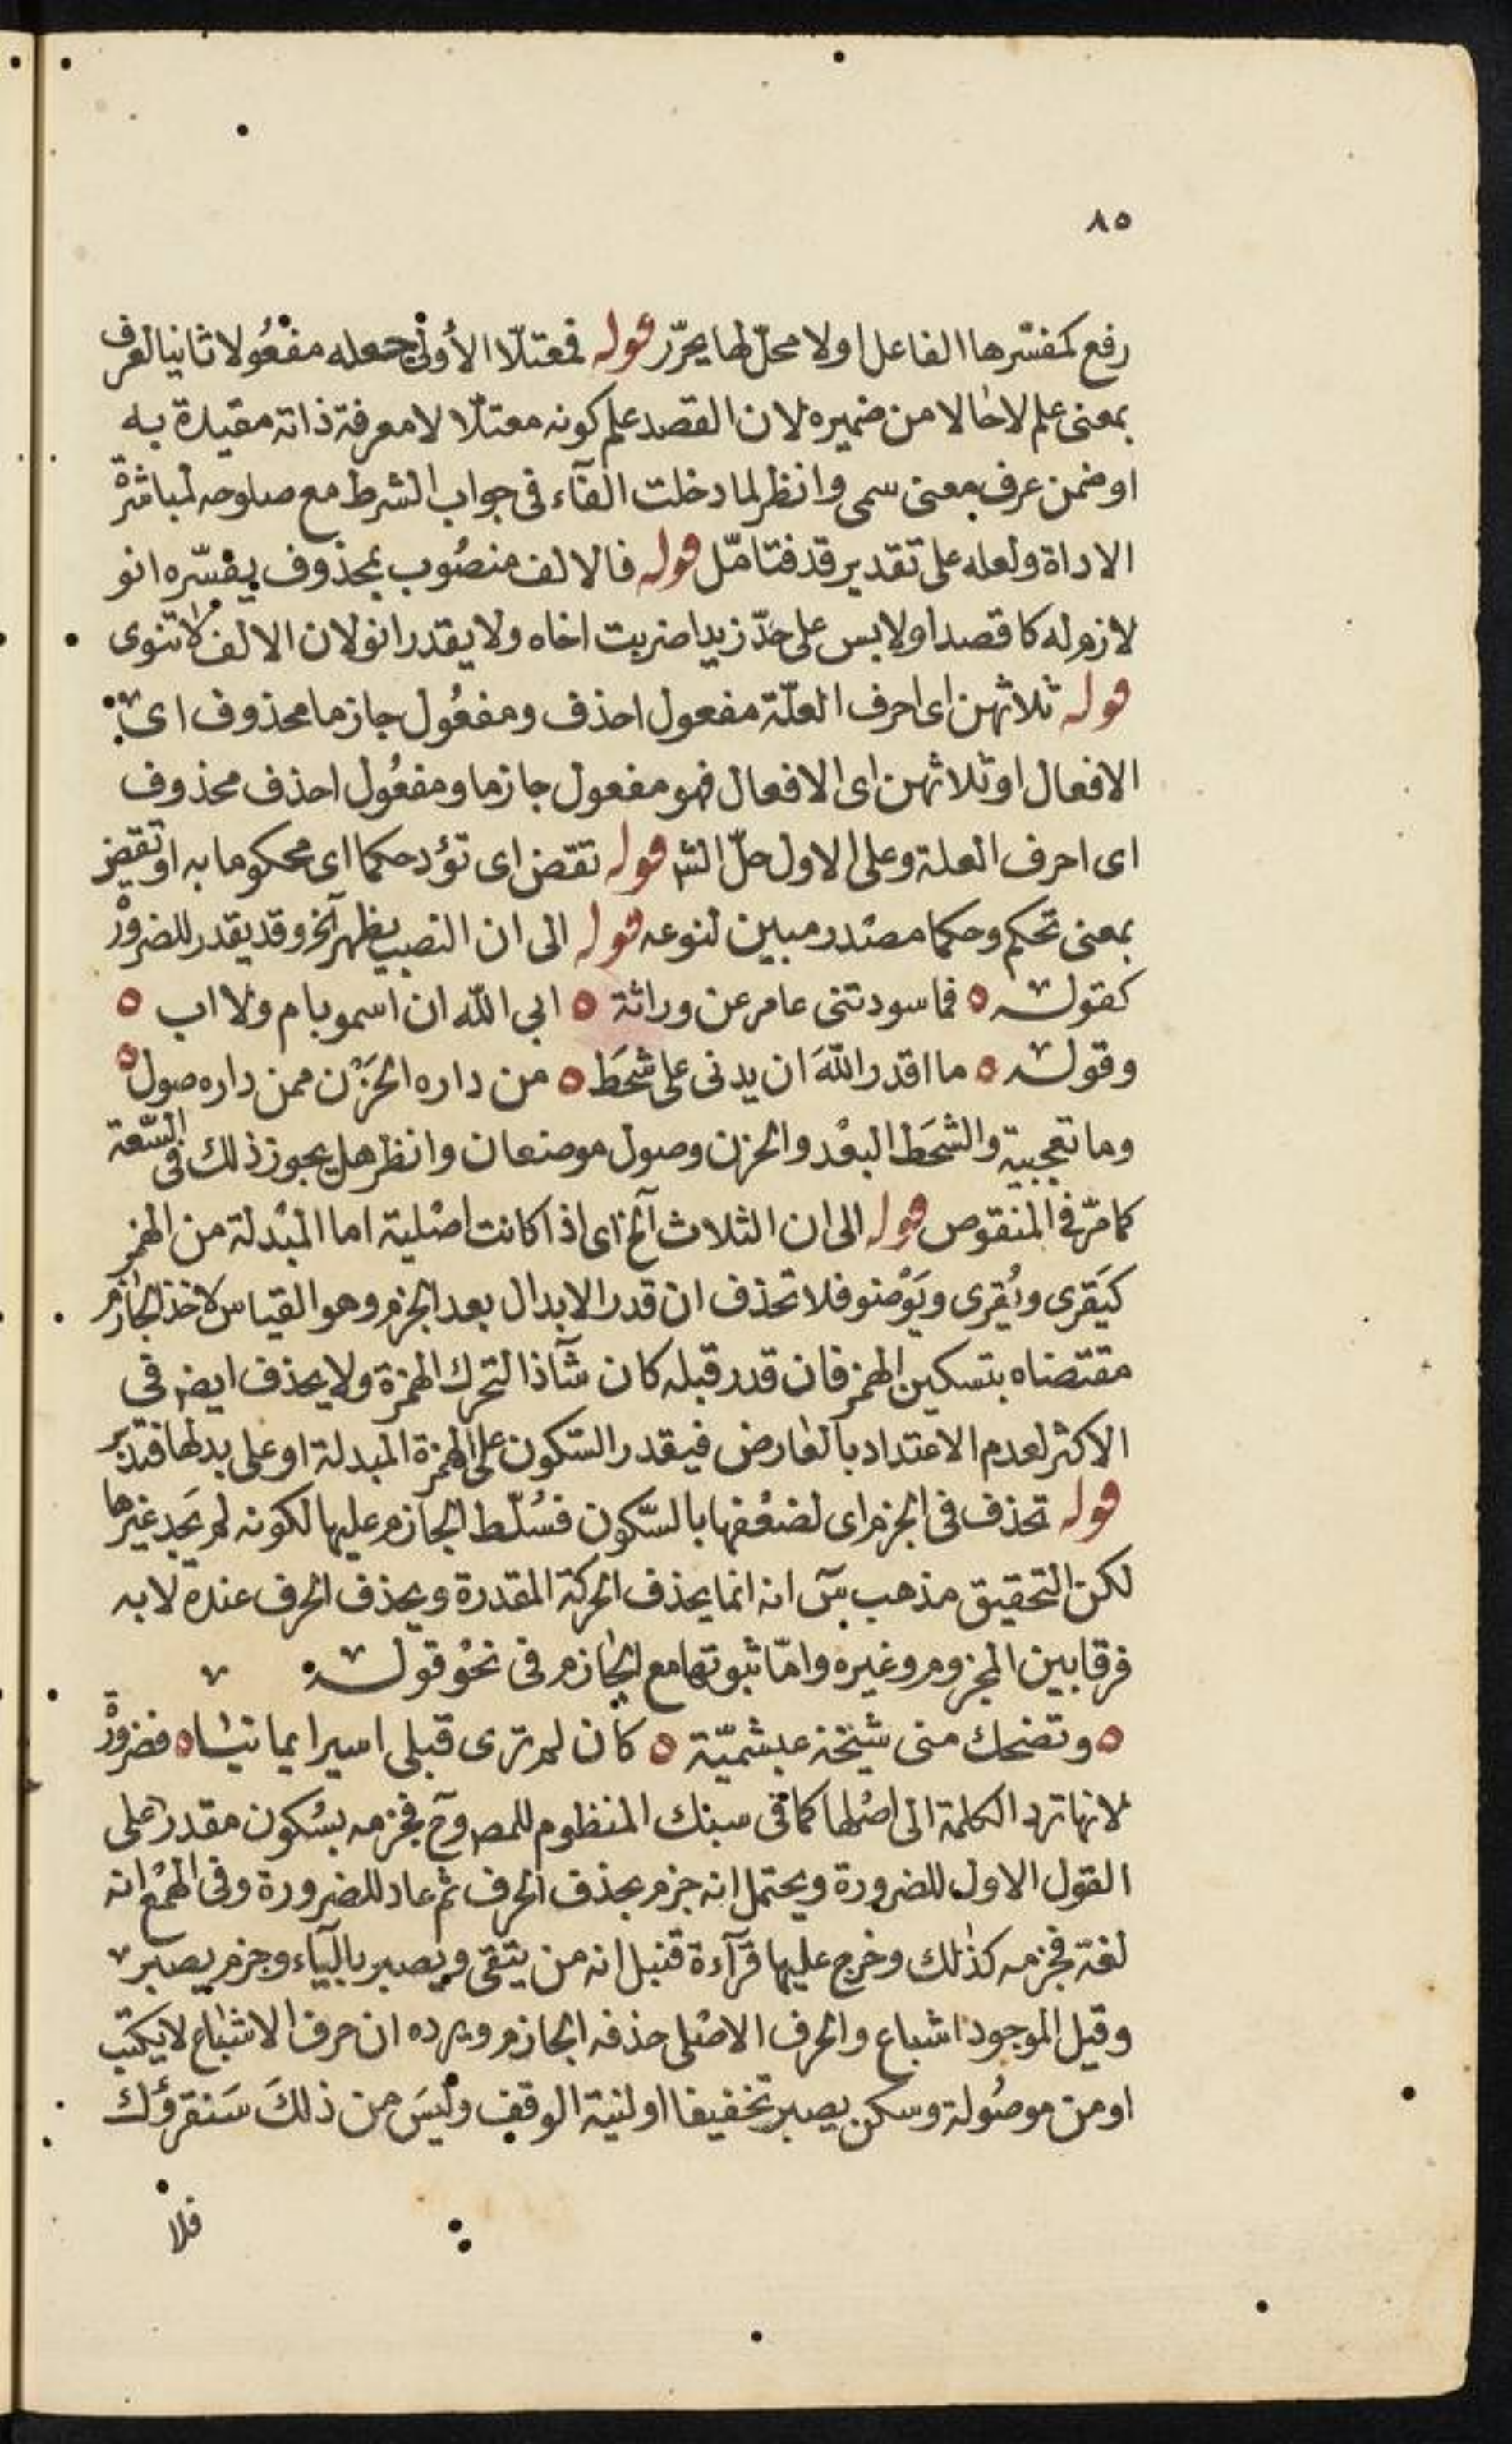 ٨٥
رفع كمفسّرها الفاعل اولا محلّ لها يحرّر قوله فمعتلّا الأولى جعله مفعُولا ثانيا لعرف
بمعنى علم لا حالا من ضميره لان القصد علم كونه معتلّا لا معرفة ذاته مقيدة به
او ضمن عرف معنى سمى وانظر لما دخلت الفآء فى جواب الشرط مع صلوحه لمباشرة
الاداة ولعله على تقدير قد فتامّل قوله فالالف منصُوب بمحذوف يفسّره انو
لازم له كاقصد او لابس على حدّ زيدا ضربت اخاه ولا يقدر انو لان الالف لا تنوى
قوله ثلاثهن اى احرف العلّة مفعول احذف ومفعُول جازما محذوف اى
الافعال او ثلاثهن اى الافعال فهو مفعول جازما ومفعُول احذف محذوف
اى احرف العلة وعلى الاول حلّ الش قوله تقض اى تؤد حكما اى محكوما به او تقض
بمعنى تحكم وحكما مصدر مبين لنوعه قوله الى ان النصب يظهر آلخ وقد يقدر للضرورة
كقوله ٥ فما سودتنى عامر عن وراثة ٥ ابى الله ان اسمو بام ولا اب ٥
وقوله ٥ ما اقدر اللهَ ان يدنى على شحَط ٥ من داره الحَزْن ممن داره صول ٥
وما تعجبية والشحَط البعْد والحزن وصول موضعان وانظر هل يجوز ذلك فى السّعة
كما مرّ فى المنقوص قوله الى ان الثلاث آلخ اى اذا كانت اصْلية اما المبْدلة من الهمز
كيَقرى ويُقرى ويَوْضو فلا تحذف ان قدر الابدال بعد الجزم وهو القياس لاخذ الجازم
مقتضاه بتسكين الهمز فان قدر قبله كان شآذا لتحرك الهمزة ولا يحذف ايضا فى
الاكثر لعدم الاعتداد بالعارض فيقدر السّكون على الهمزة المبدلة او على بدلها فتدبر
قوله تحذف فى الجزم اى لضعْفها بالسّكون فسُلّط الجازم عليها لكونه لم يَجد غيرها
لكن التحقيق مذهب سٓ انه انما يحذف الحركة المقدرة ويحذف الحرف عنده لا به
فرقا بين المجزوم وغيره وامّا ثبوتها مع الجازم فى نحْو قوله
٥ وتضحك منى شيْخة عبشميّة ٥ كان لم ترى قبلى اسيرا يمانيا ٥ فضرورة
لانها ترد الكلمة الى اصْلها كما فى سبك المنظوم للمص وح فجزمه بسُكون مقدر على
القول الاول للضرورة ويحتمل انه جزم بحذف الحرف ثم عاد للضرورة وفى الهمْع انه
لغة فجزمه كذلك وخرج عليها قرآءة قنبل انه من يتقى ويصبر باليآء وجزم يصبر
وقيل الموجود اشباع والحرف الاصْلى حذفه الجازم ويرده ان حرف الاشباع لا يكتب
او من موصُولة وسكن يصبر تخفيفا او لنية الوقف وليسَ من ذلكَ سَنقرؤك
فلا